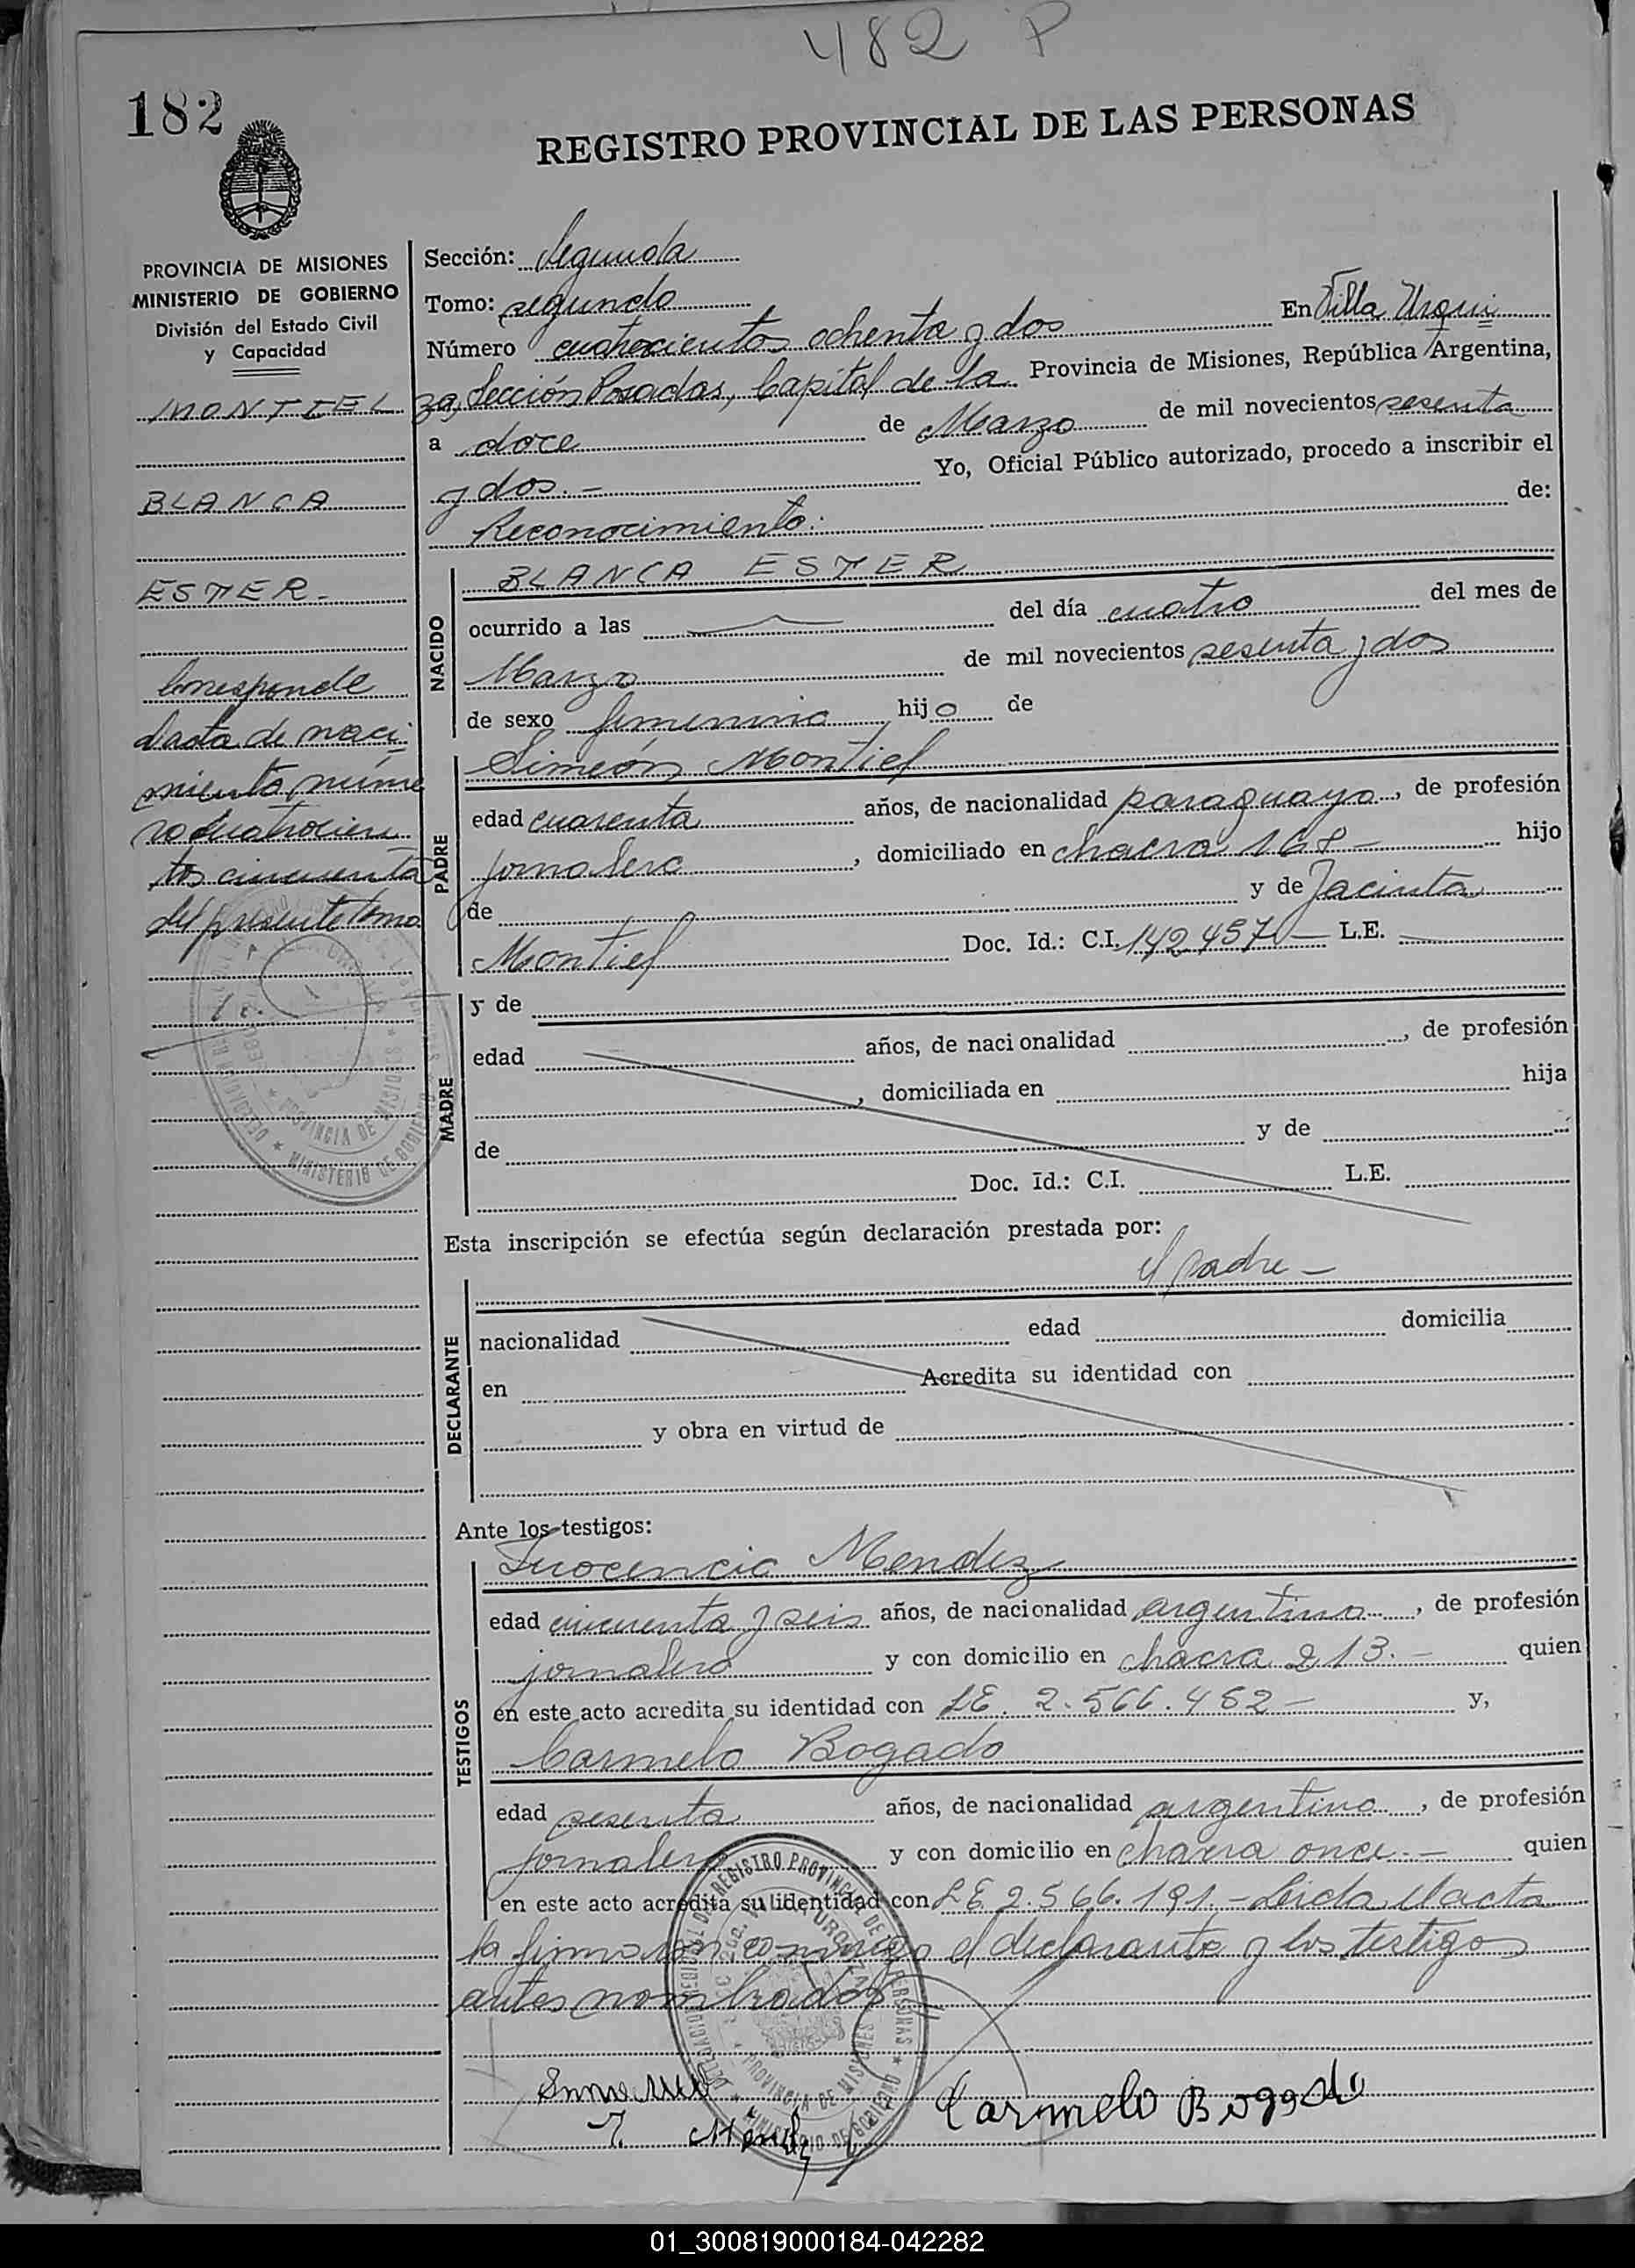 482 P
182
REGISTRO PROVINCIAL DE LAS PERSONAS
PROVINCIA DE MISIONES
MINISTERIO DE GOBIERNO
División del Estado Civil
y Capacidad
MONTIEL
BLANCA
ESTER.-
Corresponde
al acta de naci
miento núme
ro cuatrocien
tos cincuenta
del presente tomo
Sección: Segunda
Tomo: segundo
Número cuatrocientos ochenta y dos En Villa Urqui
za, Sección Posadas, Capital de la Provincia de Misiones, República Argentina,
a doce de Marzo de mil novecientos sesenta
y dos.- Yo, Oficial Público autorizado, procedo a inscribir el
Reconocimiento: de:
NACIDO
BLANCA ESTER
ocurrido a las del día cuatro del mes de
Marzo de mil novecientos sesenta y dos
de sexo femenino hijo de
PADRE
Simeón Montiel
edad cuarenta años, de nacionalidad paraguayo, de profesión
jornalero, domiciliado en chacra 168- hijo
de y de Jacinta
Montiel Doc. Id.: C.I. 142.457 — L.E.
MADRE
y de
edad años, de nacionalidad , de profesión
, domiciliada en hija
de y de
Doc. Id.: C.I. L.E.
Esta inscripción se efectúa según declaración prestada por:
el padre -
DECLARANTE
nacionalidad edad domicilia
en Acredita su identidad con
y obra en virtud de
Ante los testigos:
TESTIGOS
Inocencio Mendez
edad cincuenta y seis años, de nacionalidad argentino, de profesión
jornalero y con domicilio en chacra 213.- quien
en este acto acredita su identidad con LE. 2.566.482 - y,
Carmelo Bogado
edad sesenta años, de nacionalidad argentino, de profesión
jornalero y con domicilio en chacra once.- quien
en este acto acredita su identidad con LE 2.566.191.- Leida el acta
la firmaron conmigo el declarante y los testigos
antes nombrados
REGISTRO PROVINCIAL DE LAS PERSONAS
PROVINCIA DE MISIONES
MINISTERIO DE GOBIERNO
Carmelo Bogado
01_300819000184-042282